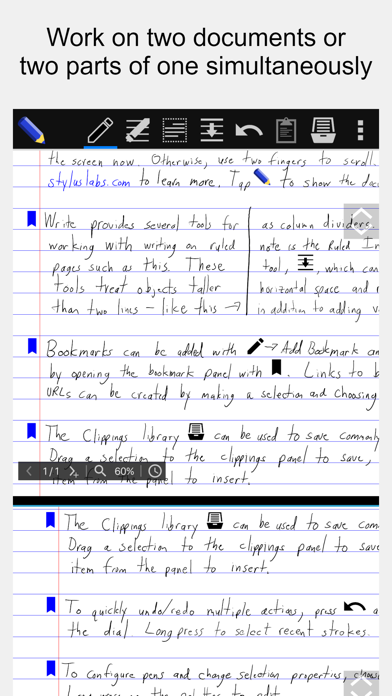 Work on two documents or
two parts of one simultaneously
the screen now. Otherwise, use two fingers to scroll.
styluslabs.com to learn more. Tap to show the doc
Write provides several tools for
working with writing on ruled
pages such as this. These
tools treat objects taller
than two lines – like this →
as column dividers.
note is the Ruled In
tool, , which can
horizontal space and
in addition to adding v
Bookmarks can be added with → Add Bookmark an
by opening the bookmark panel with . Links to b
URLs can be created by making a selection and choosing
The Clippings library can be used to save commonly
Drag a selection to the clippings panel to save,
item from the panel to insert.
1/1 60%
The Clippings library can be used to save com
Drag a selection to the clippings panel to save
item from the panel to insert.
To quickly undo/redo multiple actions, press a
the dial. Long press to select recent strokes.
To configure pens and change selection properties, choos